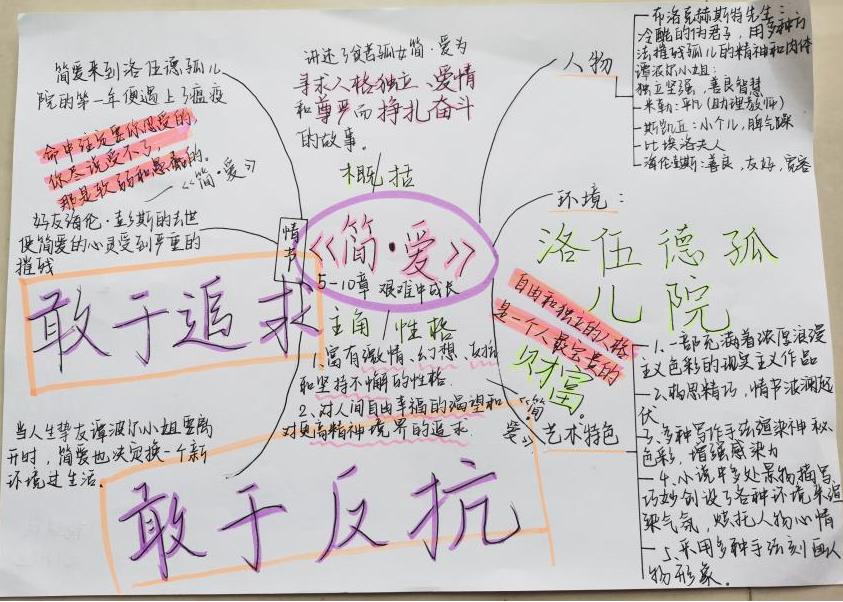 简爱来到洛伍德孤儿
院的第一年便遇上了瘟疫
命中注定要你忍受的,
你尽说受不了,
那是软弱和愚蠢的。
——《简·爱》
好友海伦·彭斯的去世
使简爱的心灵受到严重的
摧残
敢于追求
当人生挚友谭波尔小姐要离
开时,简爱也决定换一个新
环境过生活。
敢于反抗
情节
讲述了贫苦孤女简·爱为
寻求人格独立、爱情
和尊严而挣扎奋斗
的故事。
概括
《简·爱》
5-10章 艰难中成长
主角/性格
1.富有激情、幻想、反抗
和坚持不懈的性格.
2.对人间自由幸福的渴望和
对更高精神境界的追求.
人物
布洛克赫斯特先生:
冷酷的伪君子,用多种方
法摧残孤儿的精神和肉体
谭波尔小姐:
独立坚强、善良智慧
米勒:平凡(助理教师)
斯凯丘:小个儿,脾气躁
比埃洛夫人
善良,友好,宽容
环境:
洛伍德孤
儿院
自由和独立的人格
是一个人最宝贵的
财富。
《简·
爱》
艺术特色
1.一部充满着浓厚浪漫
主义色彩的现实主义作品
2.构思精巧,情节波澜起
伏
3.多种写作手法渲染神秘
色彩,增强感染力
4.小说中多处景物描写,
巧妙创设了各种环境来渲
染气氛,烘托人物心情
5.采用多种手法刻画人
物形象。